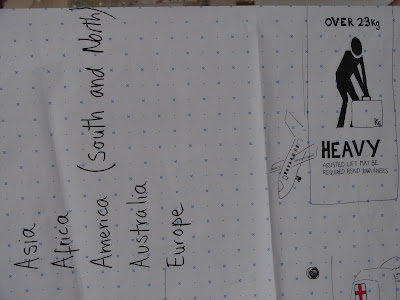 Asia
Africa
America (South and North)
Australia
Europe
OVER 23kg
Kg
HEAVY
ASSISTED LIFT MAY BE
REQUIRED BEND YOUR KNEES